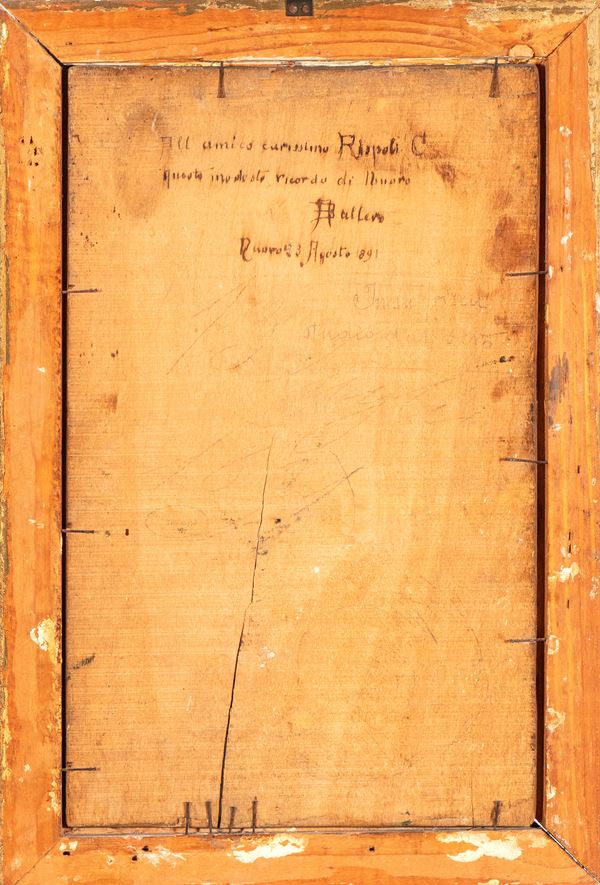 All' amico carissimo Rispoli C.
Questo modesto ricordo di Nuoro
A Ballero
Nuoro 23 Agosto 1891